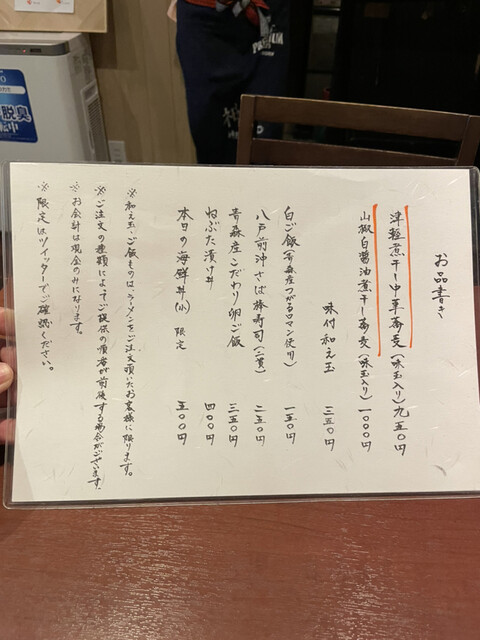 お品書き
津軽煮干し中華蕎麦(味玉入り)九五〇円
山椒白醤油煮干し蕎麦(味玉入り)一〇〇〇円
味付和え玉 三五〇円
白ご飯(青森産つがるロマン使用) 一五〇円
八戸前沖さば棒寿司(二貫) 二五〇円
青森産こだわり卵ご飯 三五〇円
ねぶた漬け丼 四〇〇円
本日の海鮮丼(小) 限定 五〇〇円
※和え玉・ご飯ものは、ラーメンをご注文頂いたお客様に限ります。
※ご注文の種類によってご提供の順番が前後する場合がございます。
※お会計は現金のみになります。
※限定はツイッターでご確認ください。
脱臭
転中
PREMIUM